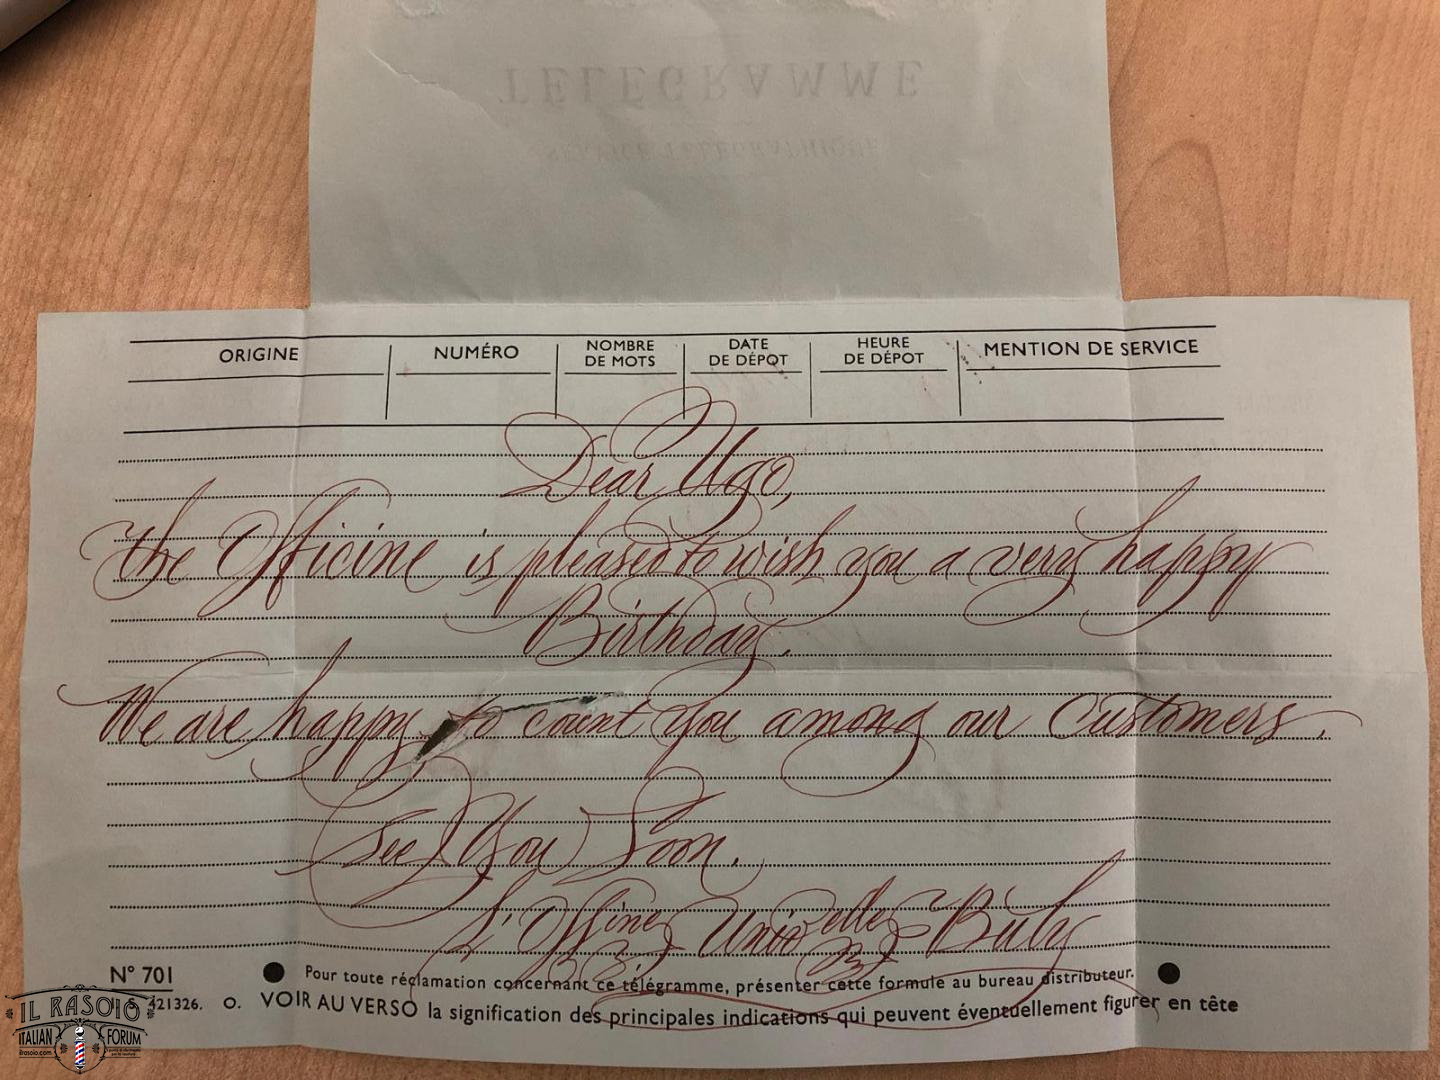 TÉLÉGRAMME
SERVICE TÉLÉGRAPHIQUE
ORIGINE NUMÉRO NOMBRE DE MOTS DATE DE DÉPOT HEURE DE DÉPOT MENTION DE SERVICE
Dear Ugo,
the Officine is pleased to wish you a very happy
Birthday.
We are happy to count you among our Customers.
See You Soon.
L'Officine Universelle Buly
N° 701 ● Pour toute réclamation concernant ce télégramme, présenter cette formule au bureau distributeur. ●
421326. O. VOIR AU VERSO la signification des principales indications qui peuvent éventuellement figurer en tête
IL RASOIO
ITALIAN FORUM
ilrasoio.com